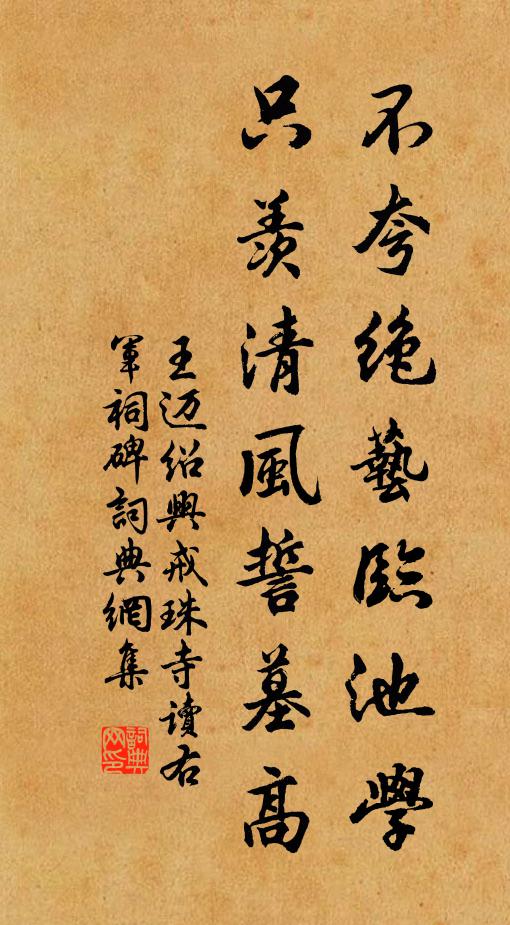 不夸絶藝臨池學
只羨清風誓墓高
王迈绍興戒珠寺讀右
軍祠碑詞典網集
詞典
网印